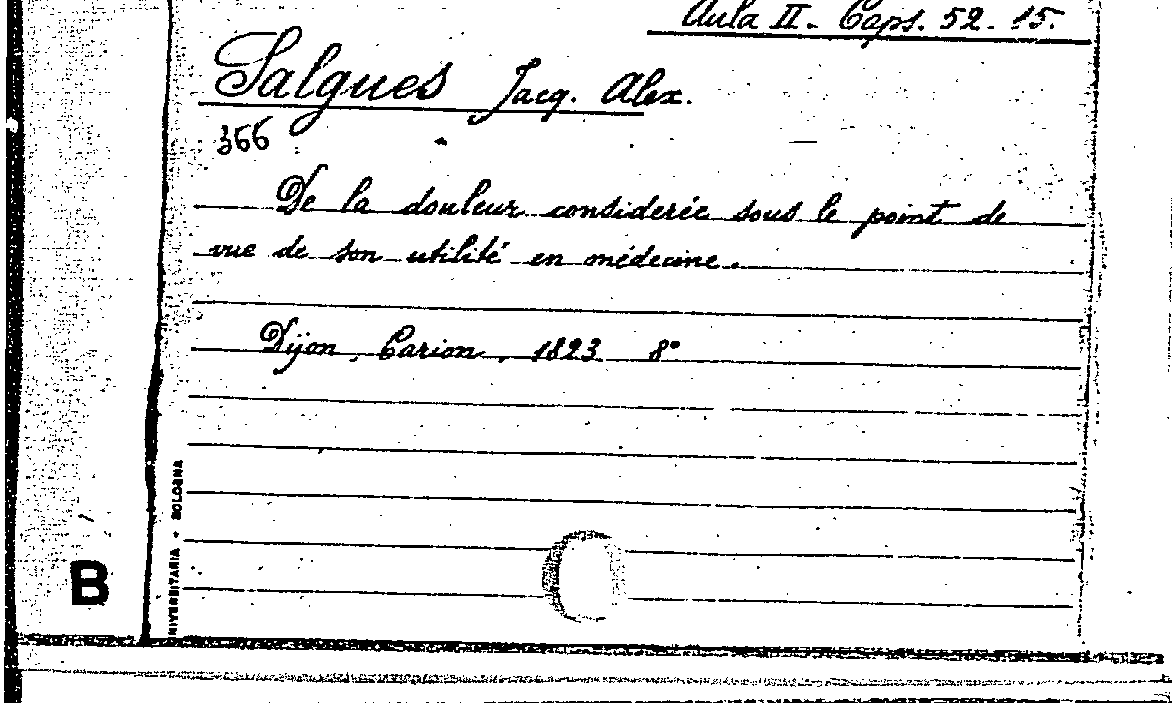 Aula II - Caps. 52 - 15.
Salgues Jacq. Alex.
366
De la douleur considerée sous le point de
vue de son utilité en médecine.
Dijon, Carion, 1823 8°
NIVERSITARIA - BOLOGNA
B